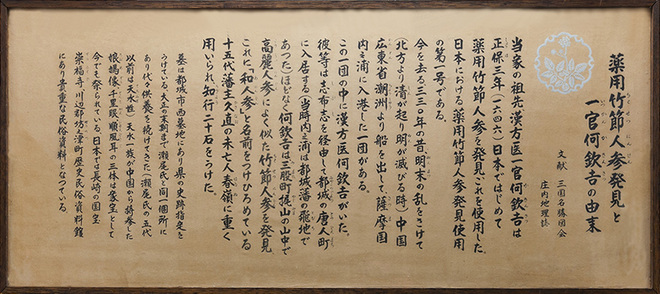 薬用竹節人参発見と
一官何欽吉の由来
文献 三国名勝図会
庄内地理誌
当家の祖先漢方医一官何欽吉は
正保三年(一六四六)日本ではじめて
薬用竹節人参を発見、これを使用した。
日本における薬用竹節人参発見使用
の第一号である。
今を去る三三〇年の昔、明末の乱をさけて
(北方より清が起り明が滅びる時)中国
広東省潮洲より船を出して、薩摩国
内之浦に入港した一団がある。
この一団の中に漢方医何欽吉がいた。
彼等は志布志を経由して都城の唐人町
に入居する(当時内之浦は都城藩の飛地で
あった)ほどなく何欽吉は三股町梶山の山中で
高麗人参によく似た竹節人参を発見
これに、和人参と名前をつけひろめている
十五代藩主久直の未亡人春嶺に重く
用いられ、知行二十石をうけた。
墓は都城市西墓地にあり県の史跡指定を
うけている、大正の末期まで瀬尾氏と同一個所に
あり代々供養を続けてきた(瀬尾氏の五代
以前は天水姓)天水一族が中国から持参した
娘媽像、千里眼、順風耳の三体は家宝として
今でも祭られている。日本では長崎の国宝
崇福寺、川辺郡坊ノ津町歴史民俗資料館
にあり貴重な民俗資料となつている。